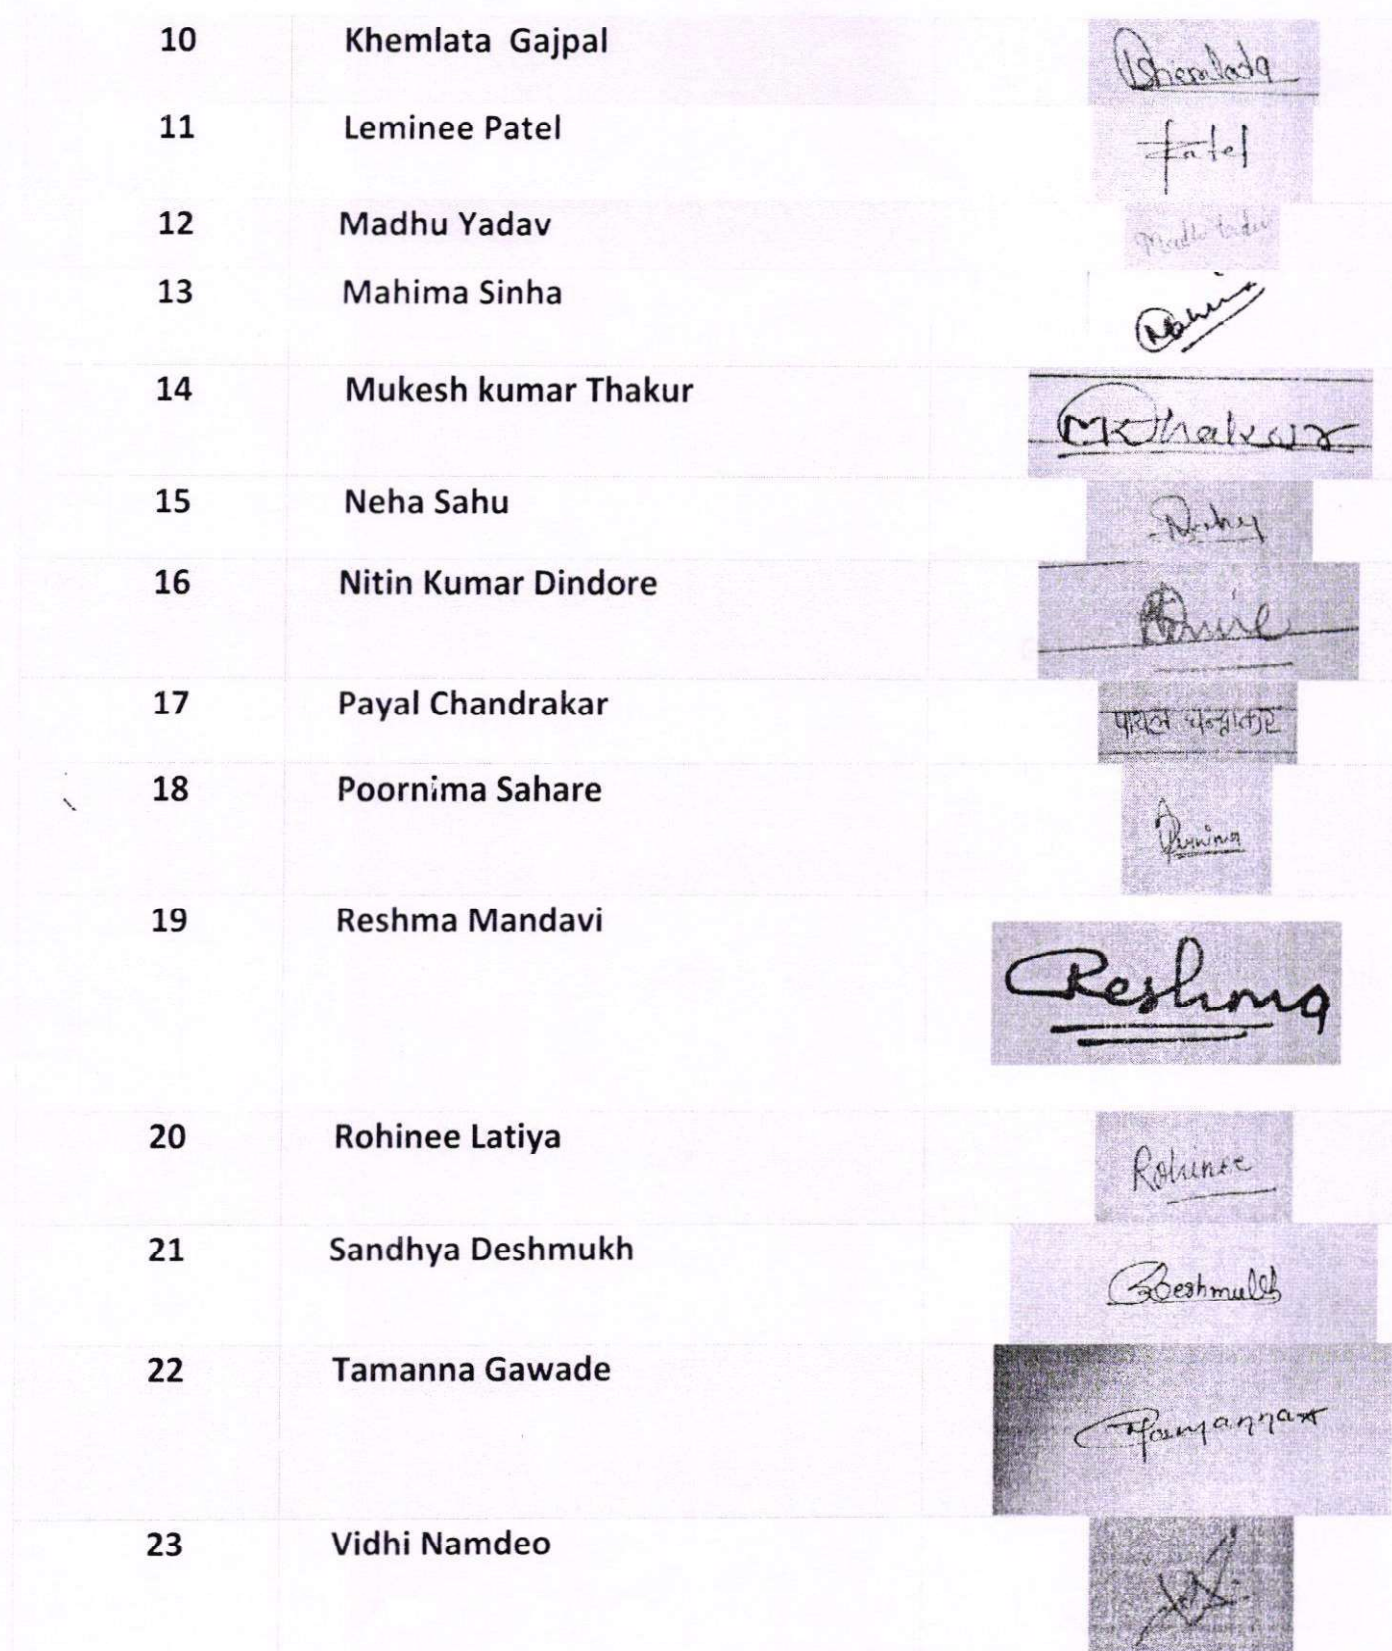 10 Khemlata Gajpal Khemlata
11 Leminee Patel Patel
12 Madhu Yadav Madhu Yadav
13 Mahima Sinha
14 Mukesh kumar Thakur MKThakur
15 Neha Sahu
16 Nitin Kumar Dindore
17 Payal Chandrakar पायल चन्द्राकर
18 Poornima Sahare Purnima
19 Reshma Mandavi Reshma
20 Rohinee Latiya Rohinee
21 Sandhya Deshmukh Deshmukh
22 Tamanna Gawade Tamanna
23 Vidhi Namdeo